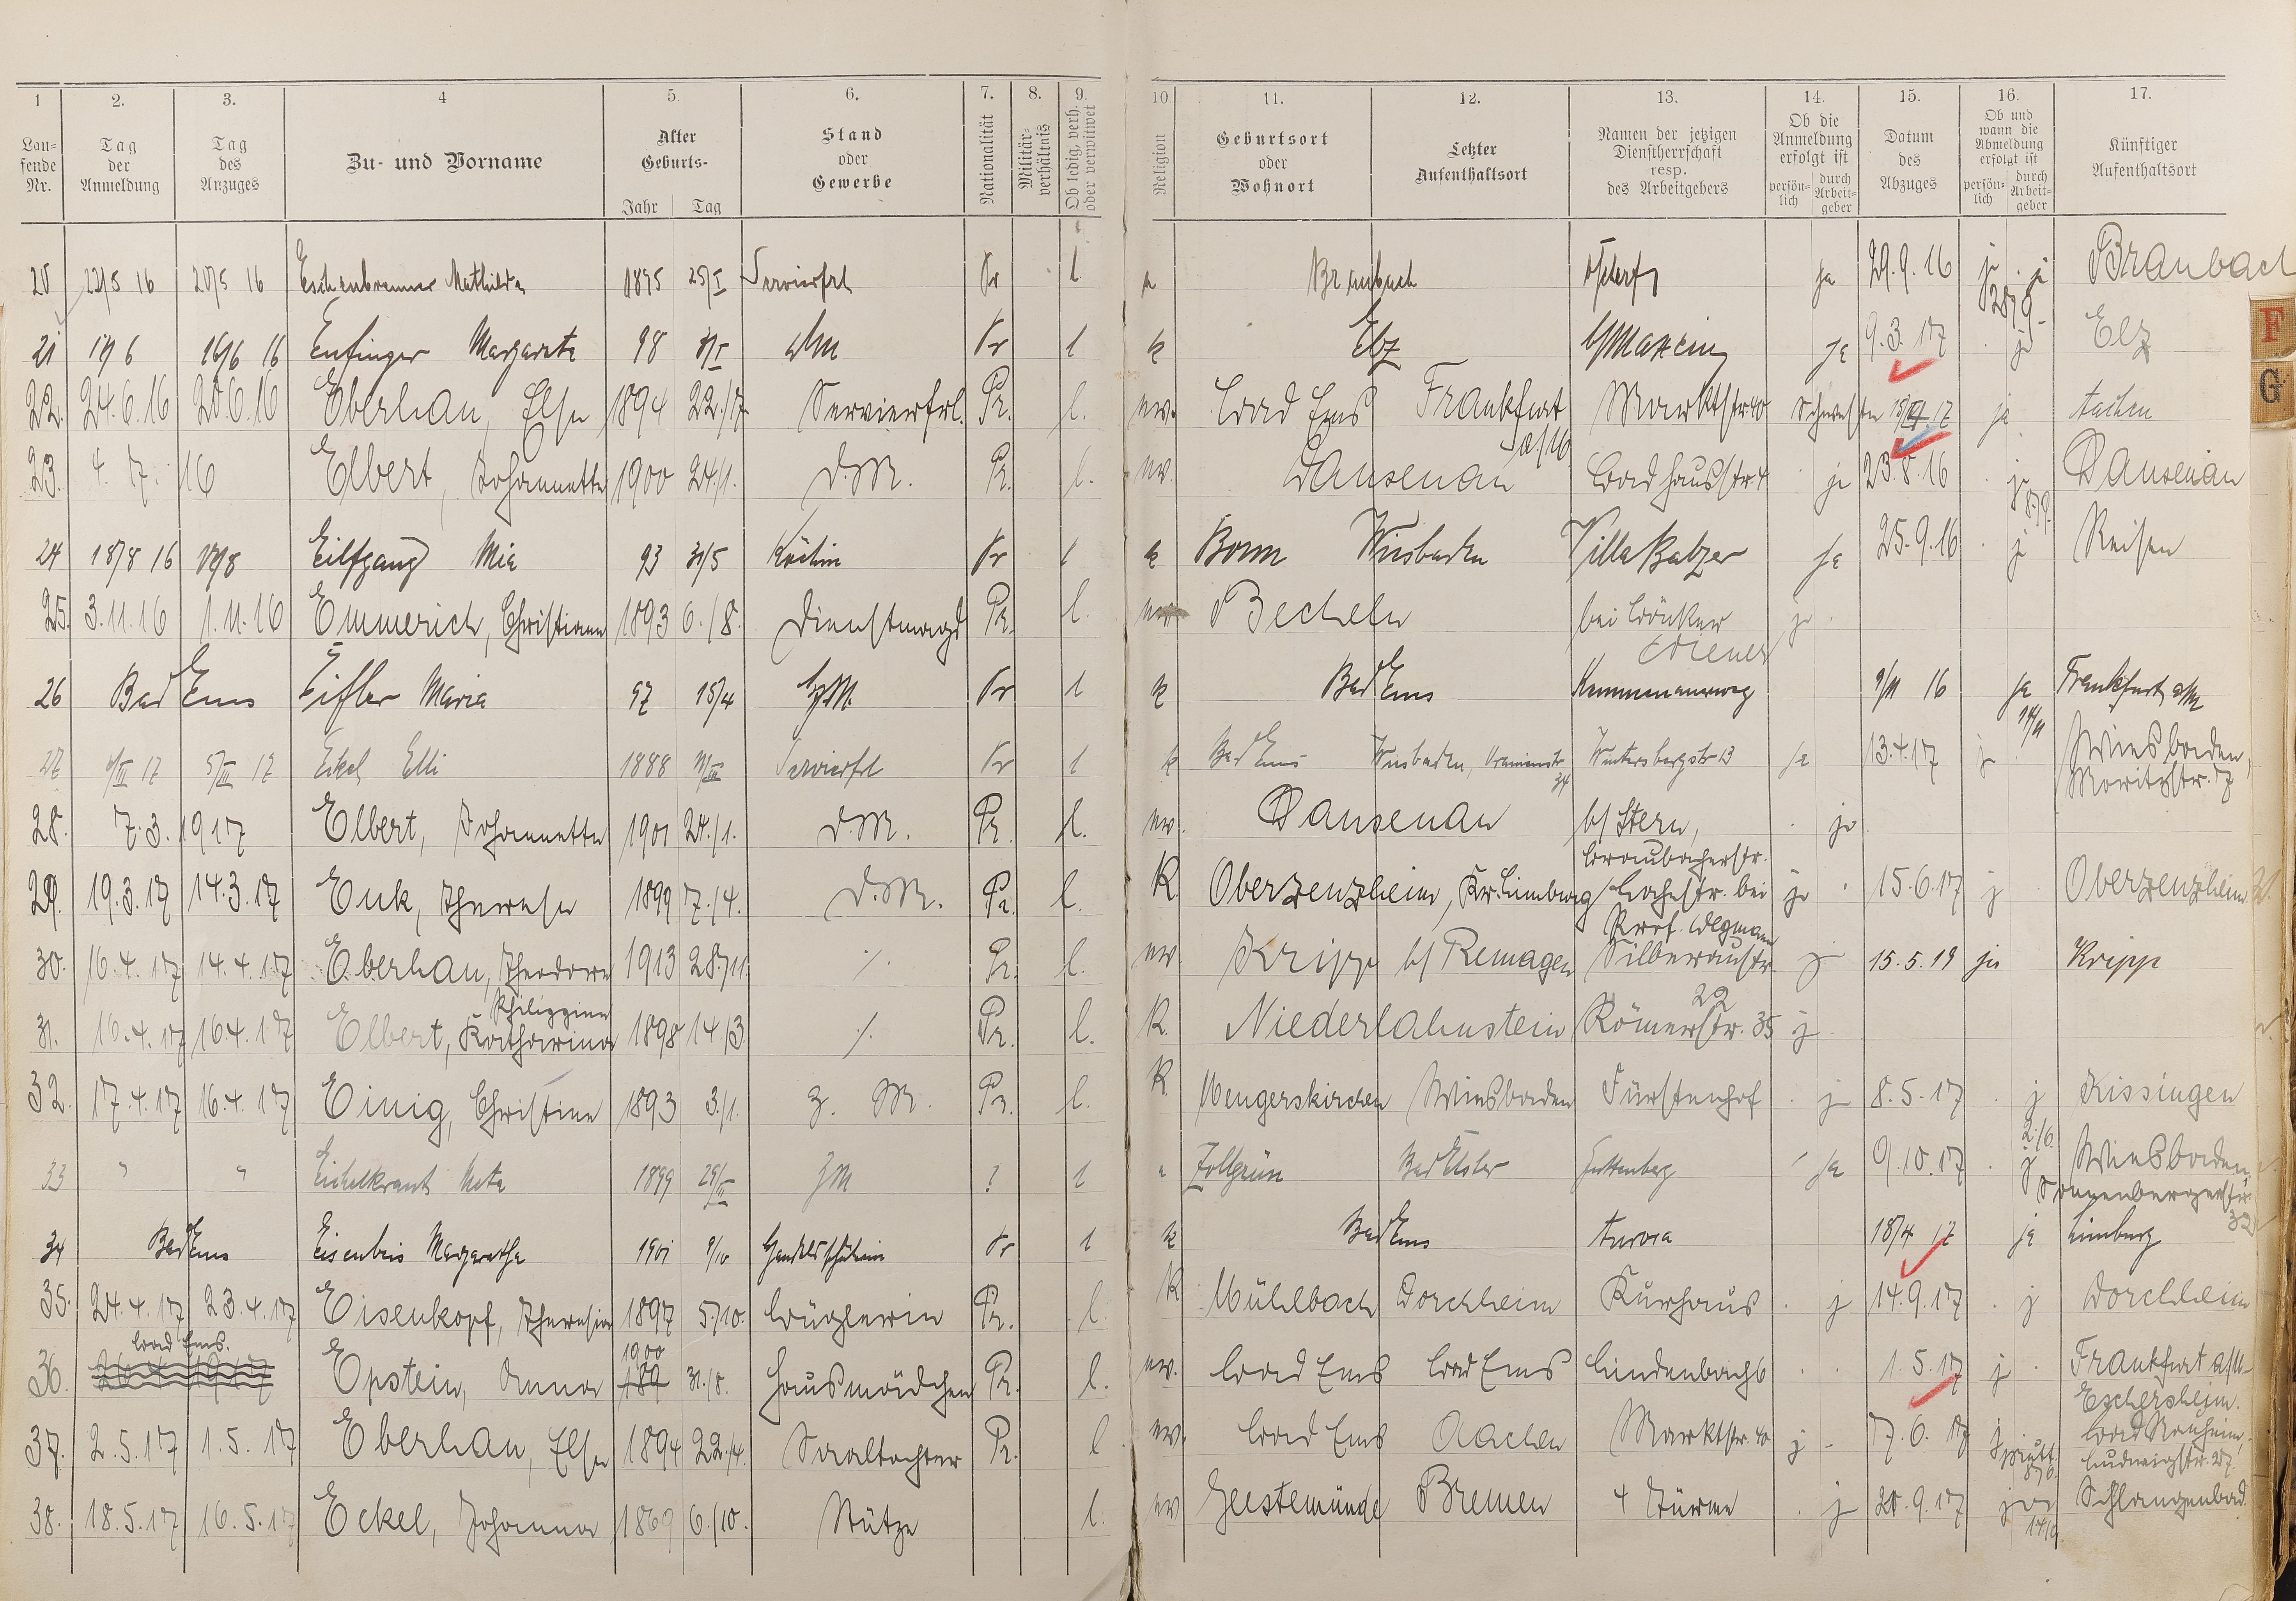 1 2. 3. 4 5. 6. 7. 8. 9. 10 11. 12. 13. 14. 15. 16. 17.
Laufende Nr. Tag der Anmeldung Tag des Anzuges Zu- und Vorname Alter Geburts- Jahr Tag Stand oder Gewerbe Nationalität Militärverhältnis Ob ledig, verh. oder verwitwet Religion Geburtsort oder Wohnort Letzter Aufenthaltsort Namen der jetzigen Dienstherrschaft resp. des Arbeitgebers Ob die Anmeldung erfolgt ist persönlich durch Arbeitgeber Datum des Abzuges Ob und wann die Abmeldung erfolgt ist persönlich durch Arbeitgeber Künftiger Aufenthaltsort
20 22/5 16 20/5 16 Eschenbrenner Mathilde 1895 25/I Servierfrl Pr l Braubach ja 29.9.16 j. j 28/9 Braubach
21 16/6 16 Enfinger Margareta 98 Pr l k Elz ja 9.3.17 j Elz
F
22. 24.6.16 20.6.16 Eberhan, Else 1894 22./4. Servierfrl. Pr. l. ev. Bad Ems Frankfurt a/M Marktstr 40 Schwester 17 ja Aachen
G
23. 4. 7. 16 Elbert, Johannette 1900 24./1. D.M. Pr. l. ev. Dausenau Badhausstr 4 ja 23.8.16 j 8./9. Dausenau
24 18/8 16 Eilfgang Mia 93 31/5 Köchin Pr l k Bonn Wiesbaden Villa Balzer ja 25.9.16 j Reisen
25. 3.11.16 1.11.16 Emmerich, Christiane 1893 6./8. Dienstmagd Pr. l. ev. Becheln bei Brönker ja
26 Bad Ems Eifler Maria 97 15/4 Pr l k Bad Ems Wiener Kemmenauerweg 9/11 16 ja 14/11 Frankfurt a/M
27 4/III 17 5/III 17 Eckel Elli 1888 Servierfrl Pr l k Bad Ems Wiesbaden, Oranienstr 34 Wintersbergstr 13 ja 13.4.17 j Wiesbaden, Moritzstr. 7
28. 7.3.1917 Elbert, Johannette 1901 24./1. D.M. Pr. l. ev. Dausenau b/ Stern, Braubacherstr. ja
29. 19.3.17 14.3.17 Enk, Therese 1899 7./4. D.M. Pr. l. K. Oberzenzheim, Kr. Limburg bei Prof. ja 15.6.17 j Oberzenzheim
30. 16.4.17 14.4.17 Eberhan, Theodore 1913 28./11. ·/. Pr. l. ev Kripp b/ Remagen Silberaustr 22 j 15.5.19 ja Kripp
31. 16.4.17 16.4.17 Elbert, Philippine Katharina 1898 14./3 ·/. Pr. l. K. Niederlahnstein Römerstr. 35 j
32. 17.4.17 16.4.17 Einig, Christine 1893 3./1. Z. M. Pr. l. K. Mengerskirchen Wiesbaden Fürstenhof j 8.5.17 j 2./6. Kissingen
33 " " Eichelkraut Meta 1899 29/III ZM ? l e Zollgrün Bad Elster Guttenberg ja 9.10.17 j Wiesbaden, Sonnenbergerstr. 32
34 Bad Ems Eisenbeis Margarethe 1901 9/10 Handelsschülerin Pr l k Bad Ems Aurora 18/4 17 ja Limburg
35. 24.4.17 23.4.17 Eisenkopf, Theresia 1897 5./10. Büglerin Pr. l. K Mühlbach Dorchheim Kurhaus j 14.9.17 j Dorchheim
36. Bad Ems. Epstein, Anna 1900 189 31./8. Hausmädchen Pr. l. ev. Bad Ems Bad Ems Lindenbach 6 1.5.17 j Frankfurt a/M-Eschersheim.
37. 2.5.17 1.5.17 Eberhan, Else 1894 22./4. Saaltochter Pr. l ev. Bad Ems Aachen Marktstr. 40 j 7.6.17 8/6. Bad Nauheim, Ludwigstr. 27.
38. 18.5.17 16.5.17 Eckel, Johanna 1869 6./10. Stütze l. ev Geestemünde Bremen 4 Türme j 20.9.17 Schlangenbad.